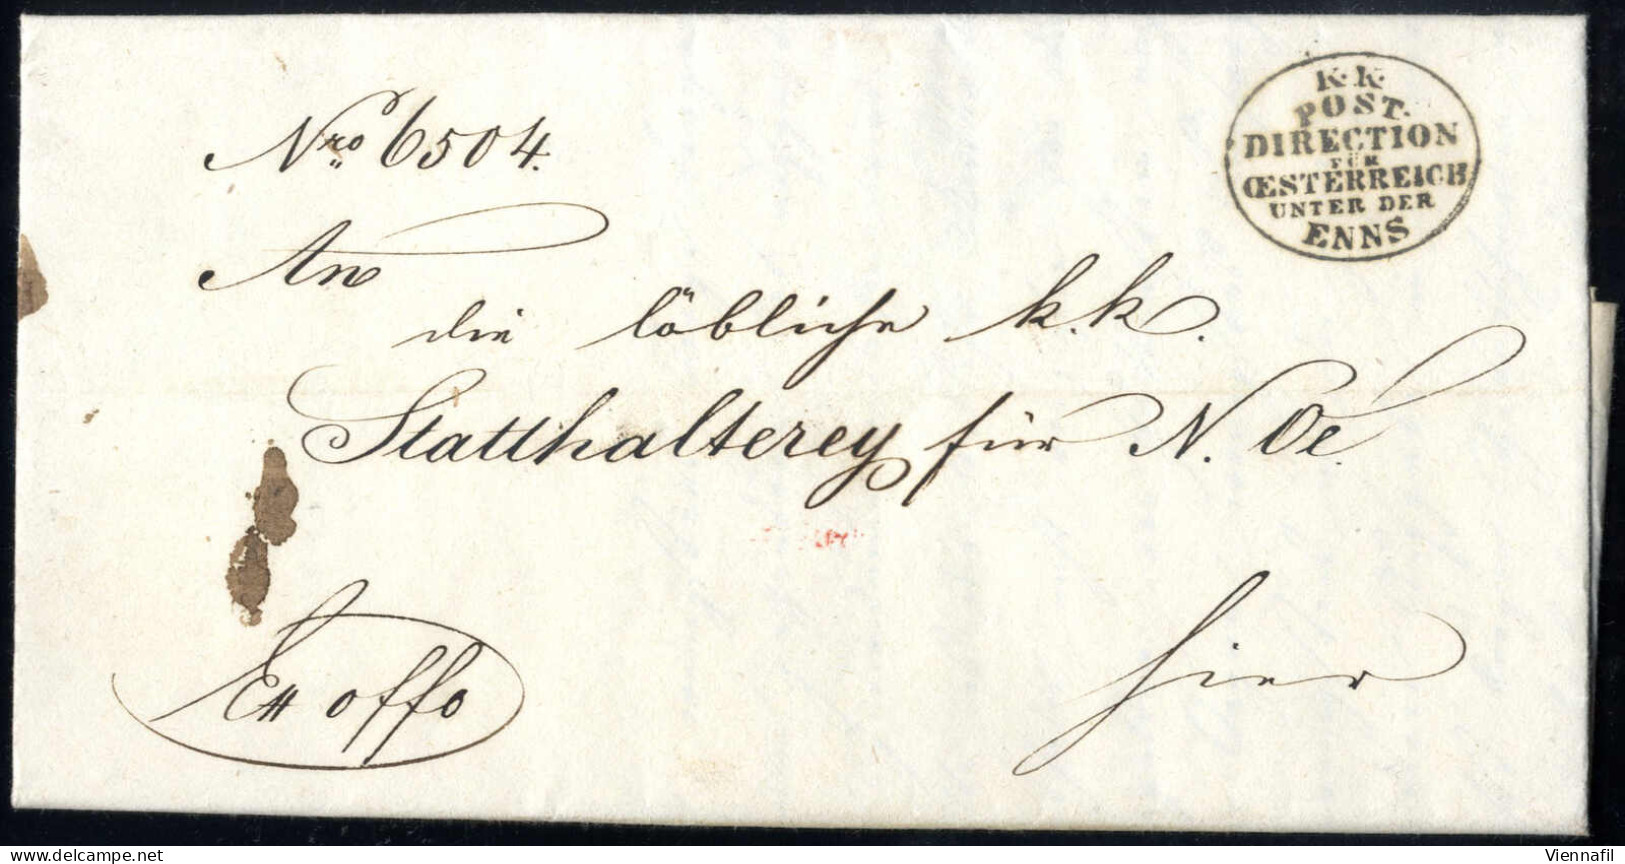 K. K.
POST.
DIRECTION
FÜR
ŒSTERREICH
UNTER DER
ENNS
Nro 6504.
An
die löbliche k. k.
Statthalterey für N. Oe.
hier
Ex offo
delcampe.net
Viennafil